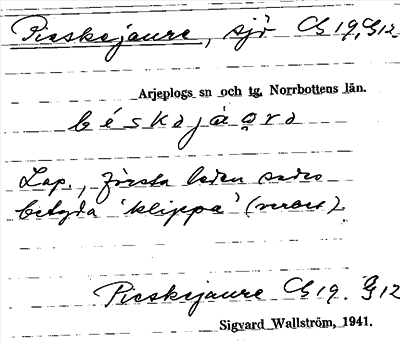 Pieskejaure, sjö Cb 19, G12
Arjeplogs sn och tg, Norrbottens län.
béskəjạ̊̄vrə
Lap., första leden sades
betyda 'klippa' (verbet).
Pieskejaure Cb 19. G12
Sigvard Wallström, 1941.